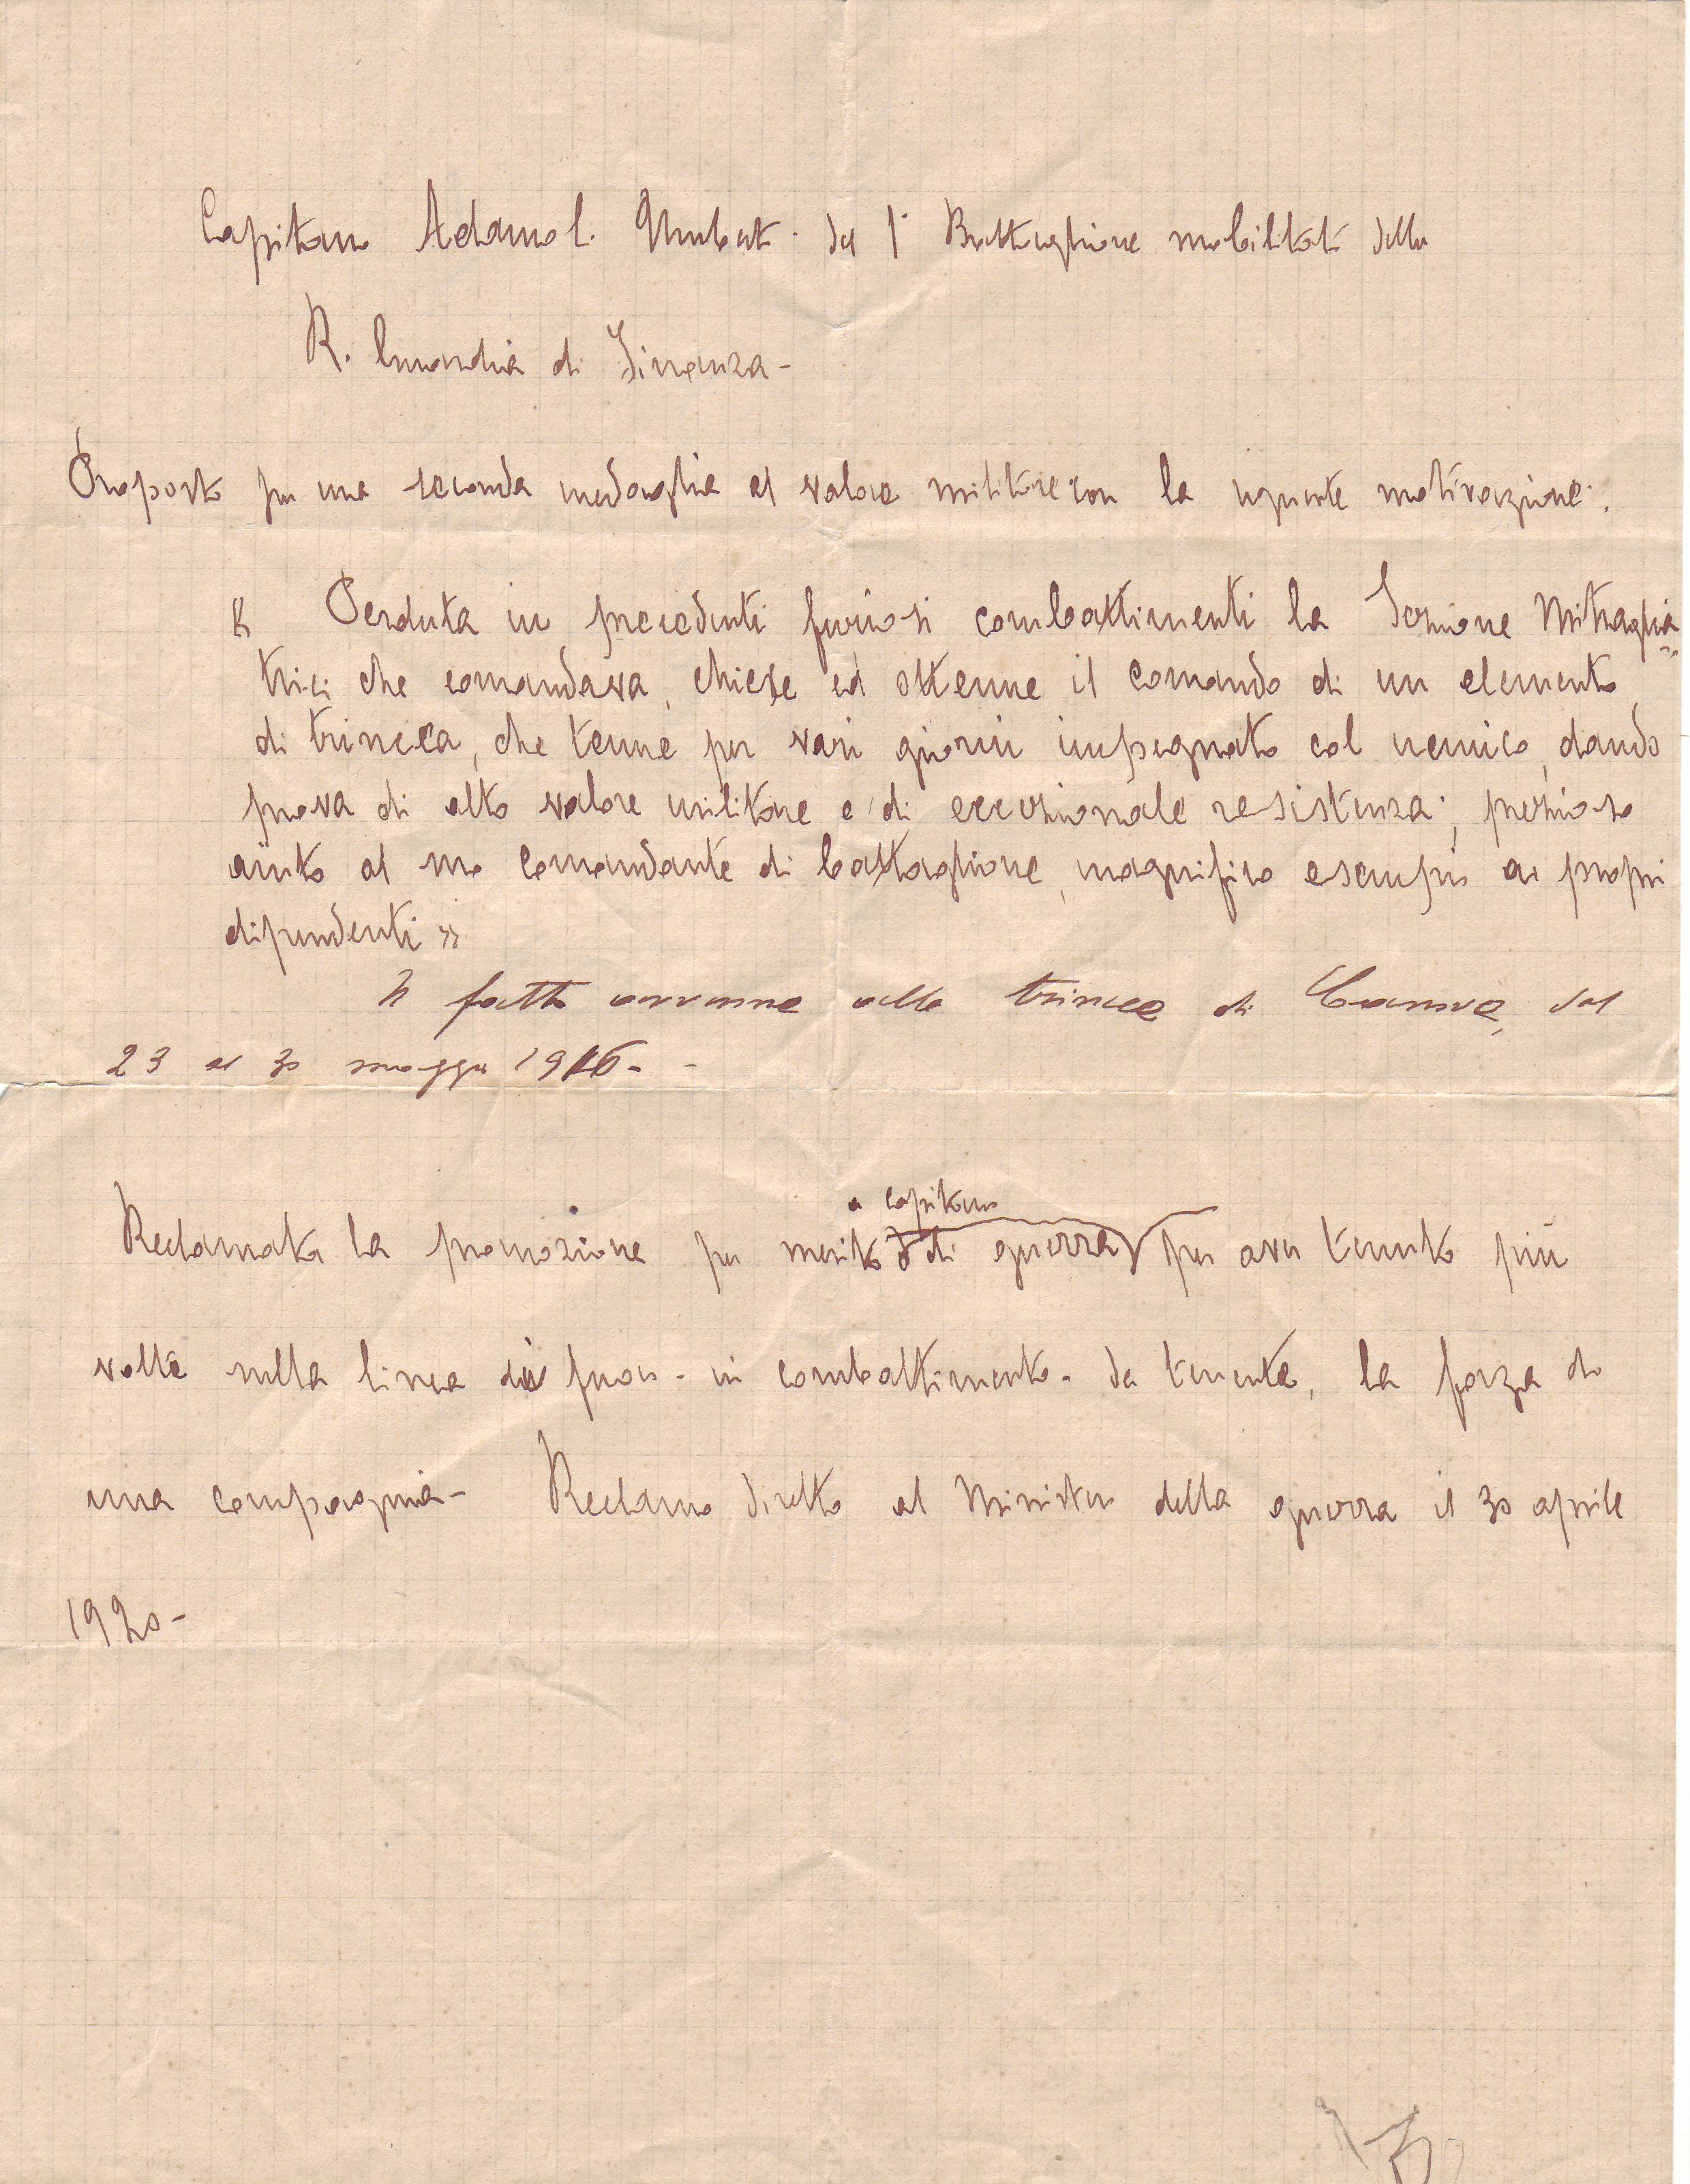 Capitano Adamoli Umberto del 1° Battaglione mobilitato della
R. Guardia di Finanza -
Proposto per una seconda medaglia al valore militare con la seguente motivazione:
« Perduta in precedenti furiosi combattimenti la Sezione Mitraglia=
trici che comandava, chiese ed ottenne il comando di un elemento
di trincea, che tenne per vari giorni impegnato col nemico, dando
prova di alto valore militare e di eccezionale resistenza; prezioso
aiuto al suo comandante di battaglione, magnifico esempio ai propri
dipendenti »
Il fatto avvenne alle trincee di Canove, dal
23 al 30 maggio 1916. -
a capitano
Reclamata la promozione per merito di guerra per aver tenuto più
volte sulla linea di fuoco - in combattimento - da tenente, la forza di
una compagnia - Reclamo diretto al Ministero della guerra il 30 aprile
1920 -